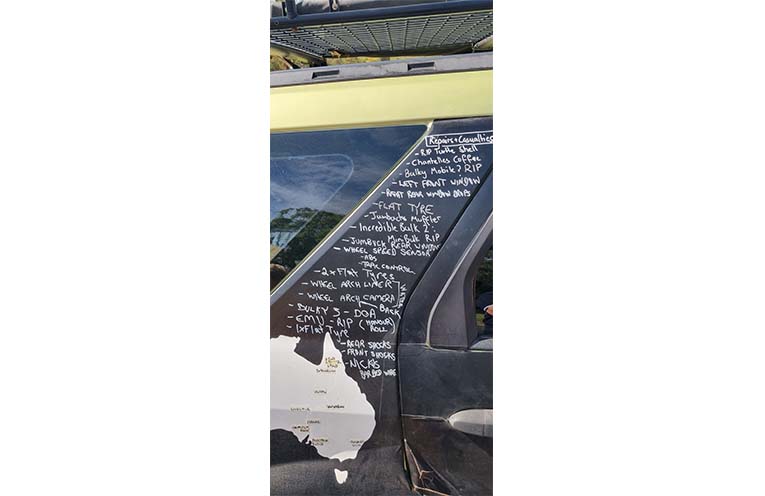 Repairs+Casualties
- RIP Turtle Shell
- Chantelles Coffee
- Bulky Mobile 2 RIP
- LEFT FRONT WINDOW
- RIGHT REAR WINDOW DRIPS
- FLAT TYRE
- Jumbucks Muffler
- Incredible Bulk 2
MiniBulk RIP
- JUMBUCK REAR WINDOW
- WHEEL SPEED SENSOR
- ABS
- TRAC CONTROL
- 2x Flat Tyres
- WHEEL ARCH LINER
- WHEEL ARCH CAMERA
BACK
- BULKY 3 - DOA
- EMU - RIP (HONOUR ROLL)
- 1xFlat Tyre
- REAR SHOCKS
- FRONT SHOCKS
- NICKS
BARBED WIRE